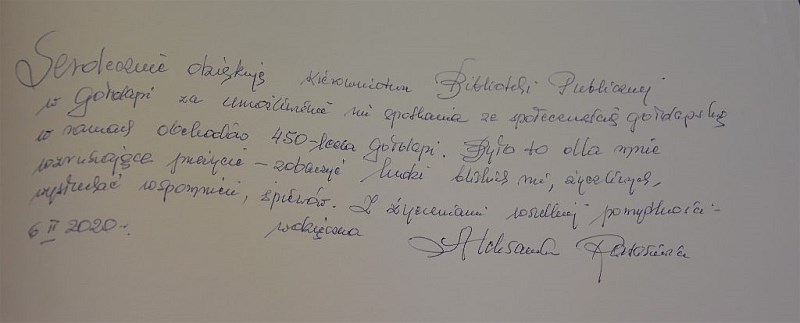 Serdecznie dziękuję Kierownictwu Biblioteki Publicznej
w Gołdapi za umożliwienie mi spotkania ze społecznością gołdapską
w ramach obchodów 450-lecia Gołdapi. Było to dla mnie
wzruszające przeżycie – zobaczyć ludzi bliskich mi, życzliwych,
wysłuchać wspomnień, śpiewów. Z życzeniami wszelkiej pomyślności -
6 II 2020 r. wdzięczna Aleksandra